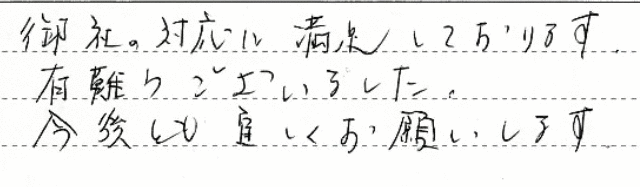 御社の対応に満足しております。
有難うございました。
今後とも宜しくお願いします